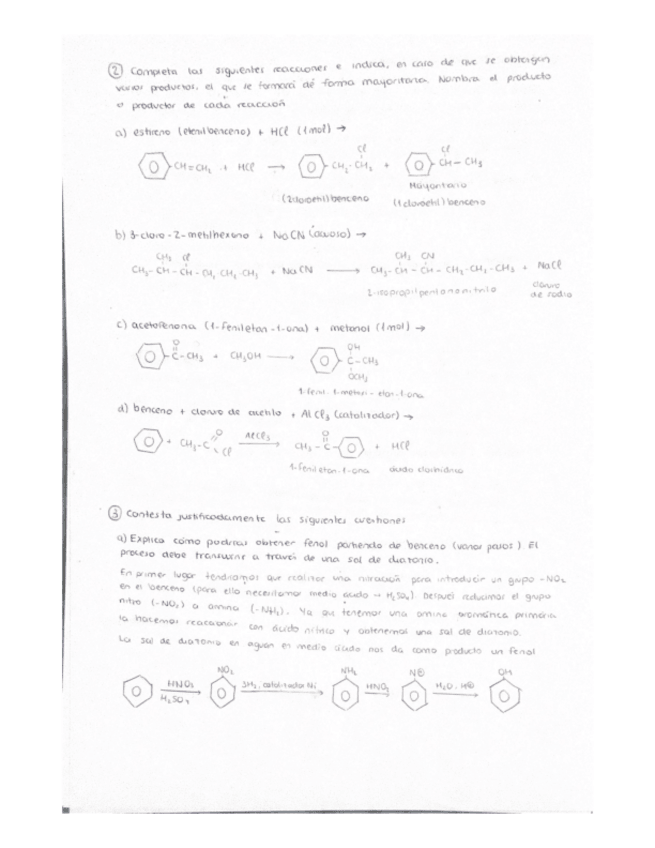 ② Completa las siguientes reacciones e indica, en caso de que se obtengan
varios productos, el que se formará de forma mayoritaria. Nombra el producto
o productos de cada reacción
a) estireno (etenilbenceno) + HCl (1mol) →
CH=CH₂ + HCl → CH₂-CH₂ Cl + Cl CH-CH₃
Mayoritario
(2cloroetil)benceno (1cloroetil)benceno
b) 3-cloro-2-metilhexano + NaCN (acuoso) →
CH₃ Cl CH₃ CN
CH₃-CH-CH-CH₂ CH₂-CH₃ + NaCN → CH₃-CH-CH-CH₂-CH₂-CH₃ + NaCl
2-isopropilpentanonitrilo cloruro
de sodio
c) acetofenona (1-feniletan-1-ona) + metanol (1mol) →
O OH
C-CH₃ + CH₃OH → C-CH₃
OCH₃
1-fenil-1-metoxi-etan-1-ona
d) benceno + cloruro de acetilo + AlCl₃ (catalizador) →
+ CH₃-C O Cl AlCl₃ → CH₃-C O + HCl
1-feniletan-1-ona ácido clorhídrico
③ Contesta justificadamente las siguientes cuestiones
a) Explica cómo podrías obtener fenol partiendo de benceno (varios pasos). El
proceso debe transcurrir a través de una sal de diazonio.
En primer lugar tendríamos que realizar una nitración para introducir un grupo -NO₂
en el benceno (para ello necesitamos medio ácido → H₂SO₄). Después reducimos el grupo
nitro (-NO₂) a amina (-NH₂). Ya que tenemos una amina aromática primaria
la hacemos reaccionar con ácido nítrico y obtenemos una sal de diazonio.
La sal de diazonio en agua en medio ácido nos da como producto un fenol
NO₂ NH₂ N⊕ OH
HNO₃ 3H₂, catalizador Ni HNO₃ H₂O, H⊕
H₂SO₄